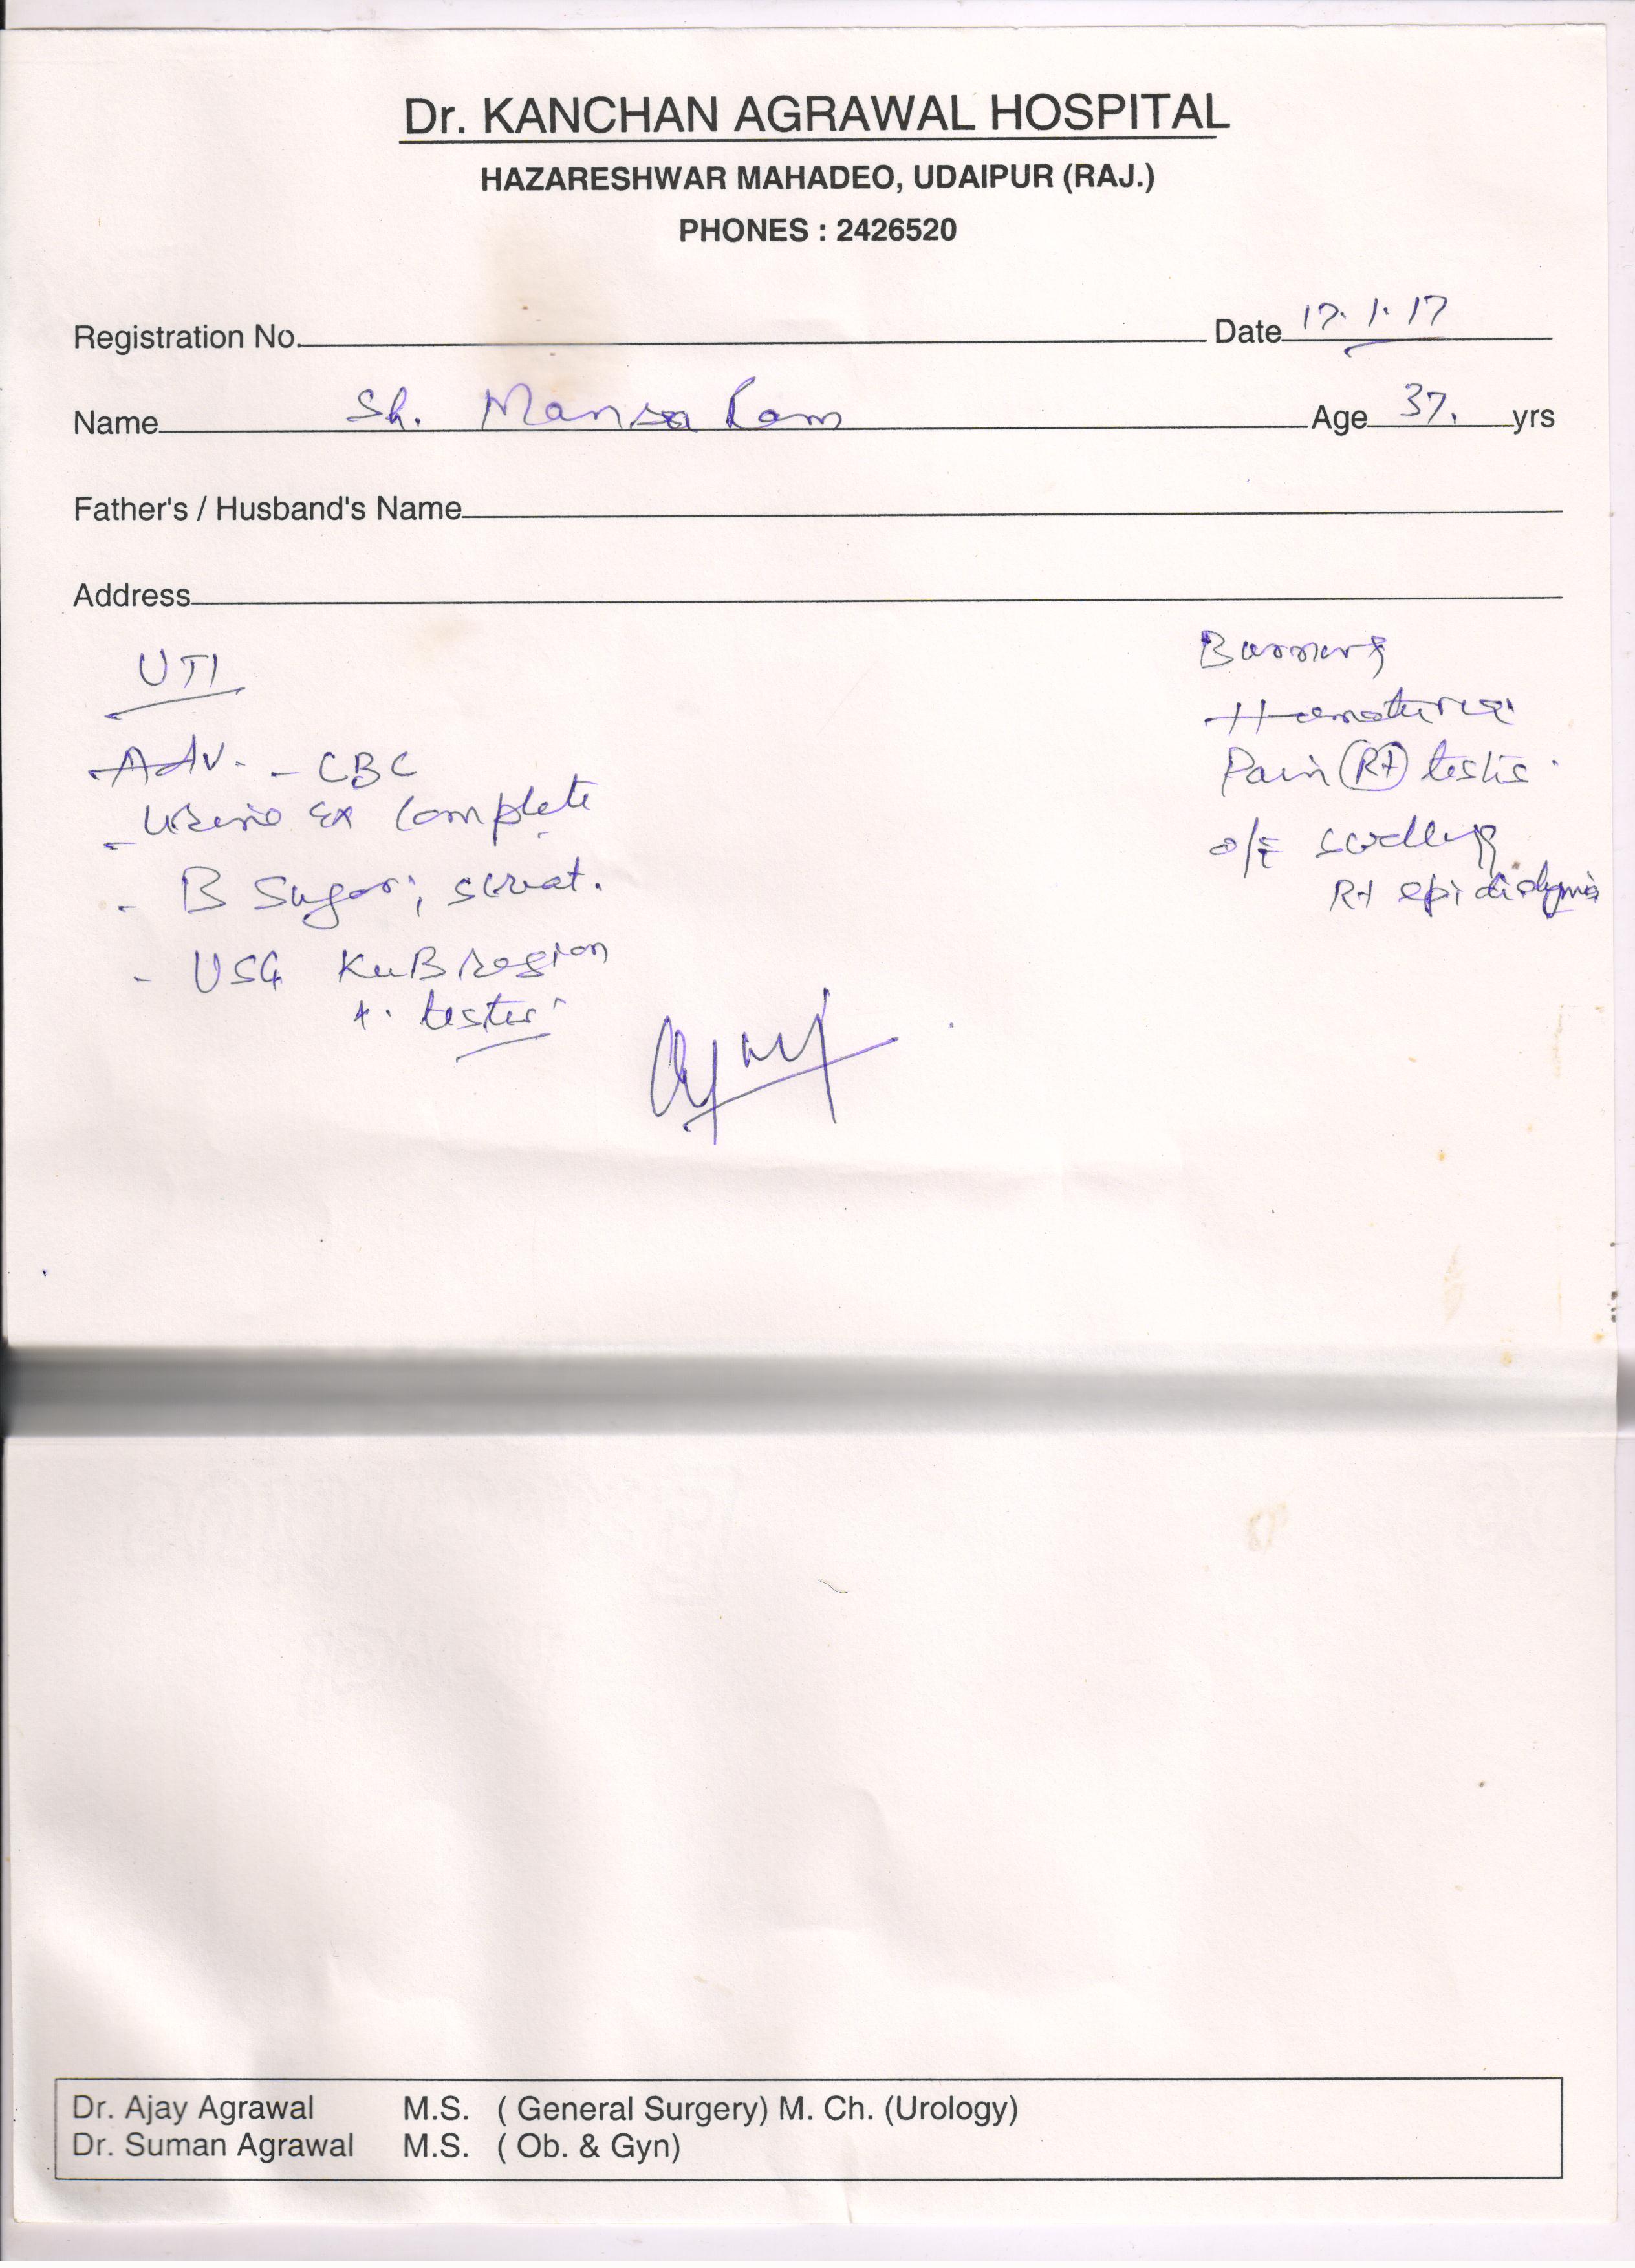 Dr. KANCHAN AGRAWAL HOSPITAL
HAZARESHWAR MAHADEO, UDAIPUR (RAJ.)
PHONES : 2426520
Registration No. Date 17.1.17
Name Sh. Mansa Ram Age 37. yrs
Father's / Husband's Name
Address
UTI
Adv. - CBC
- Urine Ex Complete
- B Sugar; screat.
- USG KUB region
+ testis
Burning
Hematuria
Pain (Rt) testis
o/E swelling
Rt epididymis
Dr. Ajay Agrawal M.S. ( General Surgery) M. Ch. (Urology)
Dr. Suman Agrawal M.S. ( Ob. & Gyn)